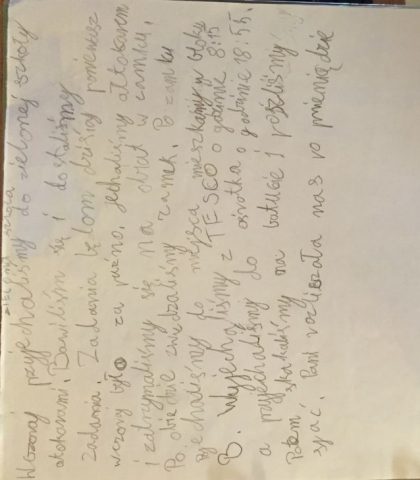 zielona szkoła
Wczoraj przyjechaliśmy do zielonej szkoły
atokarami. Bawiliśm się i dostaliśmy
zadania. Zadania będom dzisiaj ponieważ
wczoraj było za puźno. Jechaliśmy ałtokarem
i zatrzymaliśmy się na obiat w zamku.
Po obiedzie zwiedzaliśmy zamek. Po zamku
jechaliśmy do miejsca mieszkamy w bloku
B. Wyjechaliśmy z TESCO o godzinie 8:15
a przyjechaliśmy do ośrotka o godzinie 18:55.
Potem skakaliśmy na batucie i poszliśmy
spać. Pani rozliczała nas po